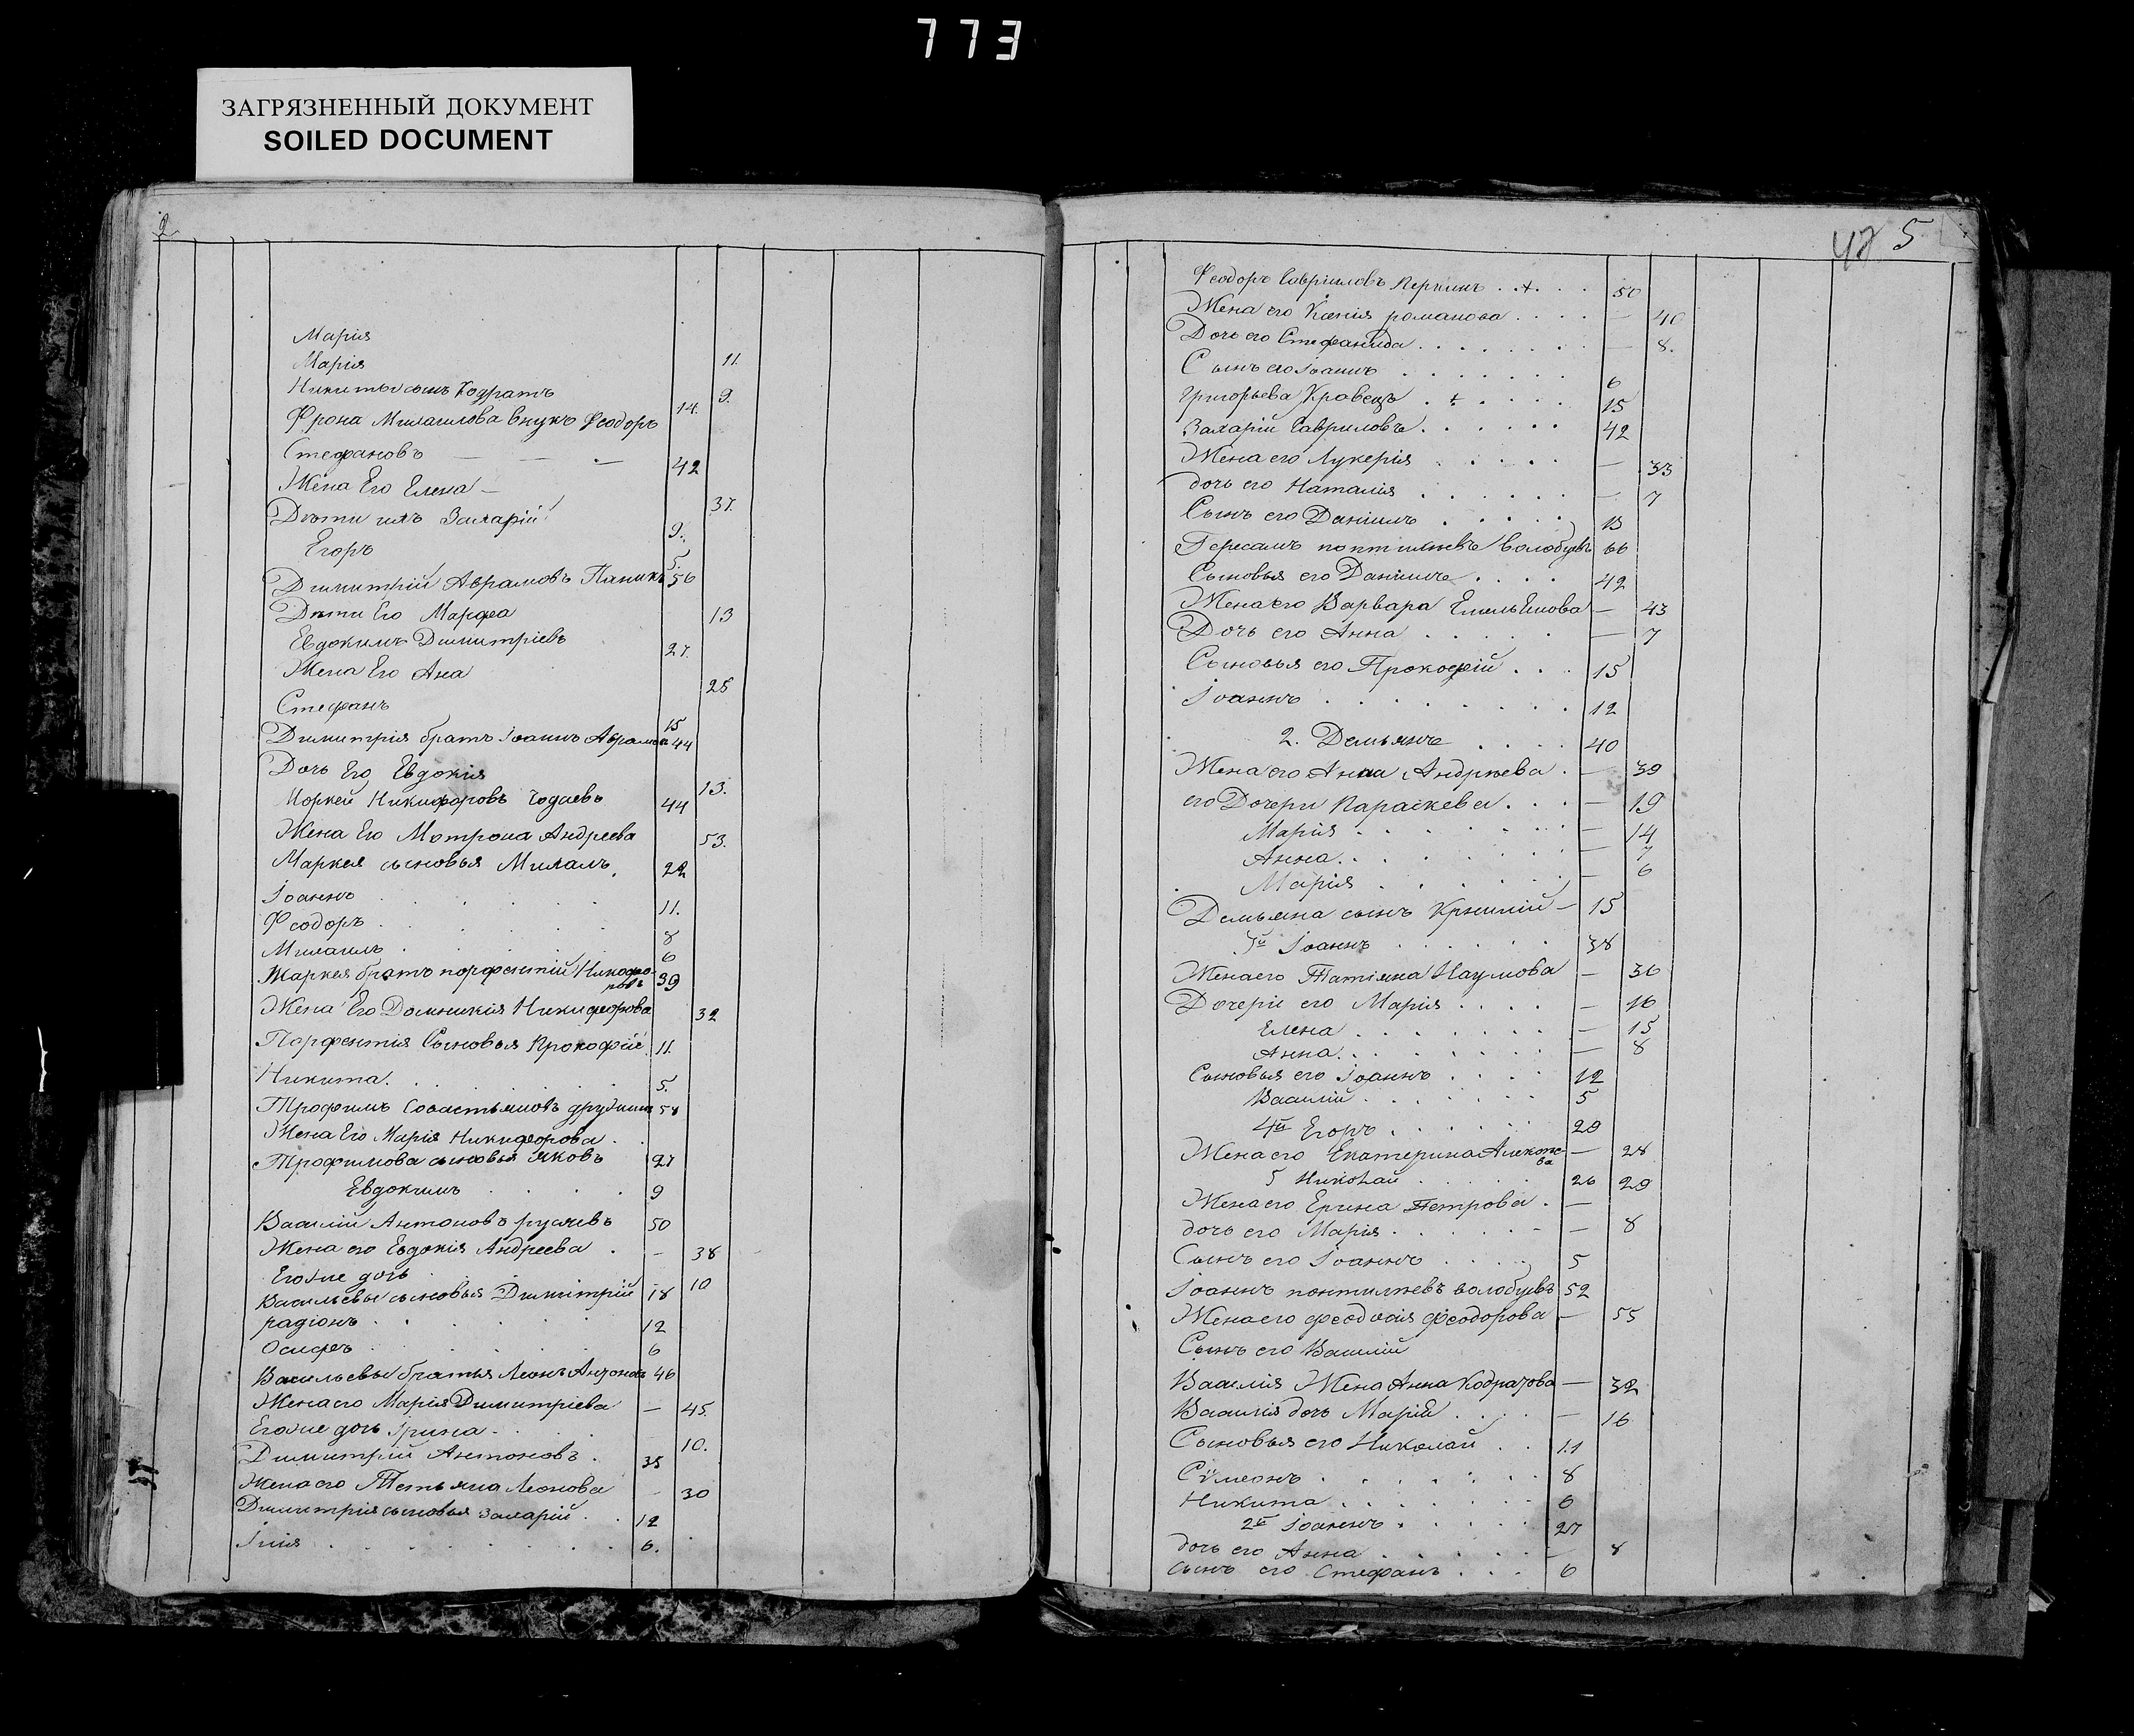 773
ЗАГРЯЗНЕННЫЙ ДОКУМЕНТ
SOILED DOCUMENT
2
Марія
Марія 11.
Никиты сынъ Кодратъ 9.
14.
Фрона Михаилова внукъ Феодоръ
Стефановъ — — — 42
Жена Его Елена — 37.
Дѣти ихъ Захарій 9.
Егоръ 5.
Димитрій Аврамовъ Паникъ 56
Дѣти Его Марфа 13
Евдокимъ Димитріевъ 27.
Жена Его Ана 25
Стефанъ 15
Димитрія братъ Іоаннъ Аврамов 44
Дочь Его Евдокія 13.
Маркей Никифоровъ Чодаевъ 44
Жена Его Мотрона Андреева 53.
Маркея сыновья Михаилъ 22
Іоаннъ 11.
Феодоръ 8
Михаилъ 6
Маркея братъ порфентій Никифо-
ровъ 39
Жена Его Домникія Никифорова 32
Парфентія Сыновья Прокофій 11.
Никита 5.
Трофимъ Совастьяновъ 58
Жена Его Марія Никифорова
Трофимова сыновья яковъ 27
Евдокимъ 9
Василій Антоновъ русачевъ 50
Жена его Евдокія Андреева — 38
Егоже дочь 10
Васильевы сыновья Димитрій 18
радіонъ 12
Осифъ 6
Васильевы братья Леонъ Антоновъ 46
Жена его Марія Димитріева — 45.
Егоже дочь Ірина 10.
Димитрій Антоновъ 35
Жена его Татьяна Леонова — 30
Димитрія сыновья Захарій 12
Ілія 6.
42 5
Феодоръ Гавріиловъ Перкинъ + 50
Жена его Ксенія романова — 40
Дочь его Стефанида — 8.
Сынъ его Іоаннъ 6
Григорьева Кравецъ + 15
Захарій Гавриловъ 42
Жена его Лукерія — 33
дочь его Наталія — 7
Сынъ его Даніилъ 13
Герасимъ понтилѣевъ волобуевъ 66
Сыновья его Даніилъ 42
Жена его Варвара Емельянова — 43
Дочь его Анна — 7
Сыновья его Прокофій 15
Іоаннъ 12
2. Демьянъ 40
Жена его Анна Андрѣева — 39
его Дочери Параскева — 19
Марія — 14
Анна — 7
Марія — 6
Демьяна сынъ — 15
3й Іоаннъ 38
Жена его Татіяна Наумова — 36
Дочери его Марія — 16
Елена — 15
Анна — 8
Сыновья его Іоаннъ 12
Василій 5
4й Егоръ 29
Жена его Екатерина Алексѣе-
ва — 28
5 Николай 26 29
Жена его Ерина Петрова —
дочь его Марія — 8
Сынъ его Іоаннъ 5
Іоаннъ понтилѣевъ волобуевъ 52
Жена его феодосія феодорова — 55
Сынъ его Василій
Василія Жена Анна Кодратова — 32
Василія дочь Марія — 16
Сыновья его Николай 11
Сѵмеонъ 8
Никита 6
2й Іоаннъ 27
дочь его Анна — 8
сынъ его Стефанъ 6